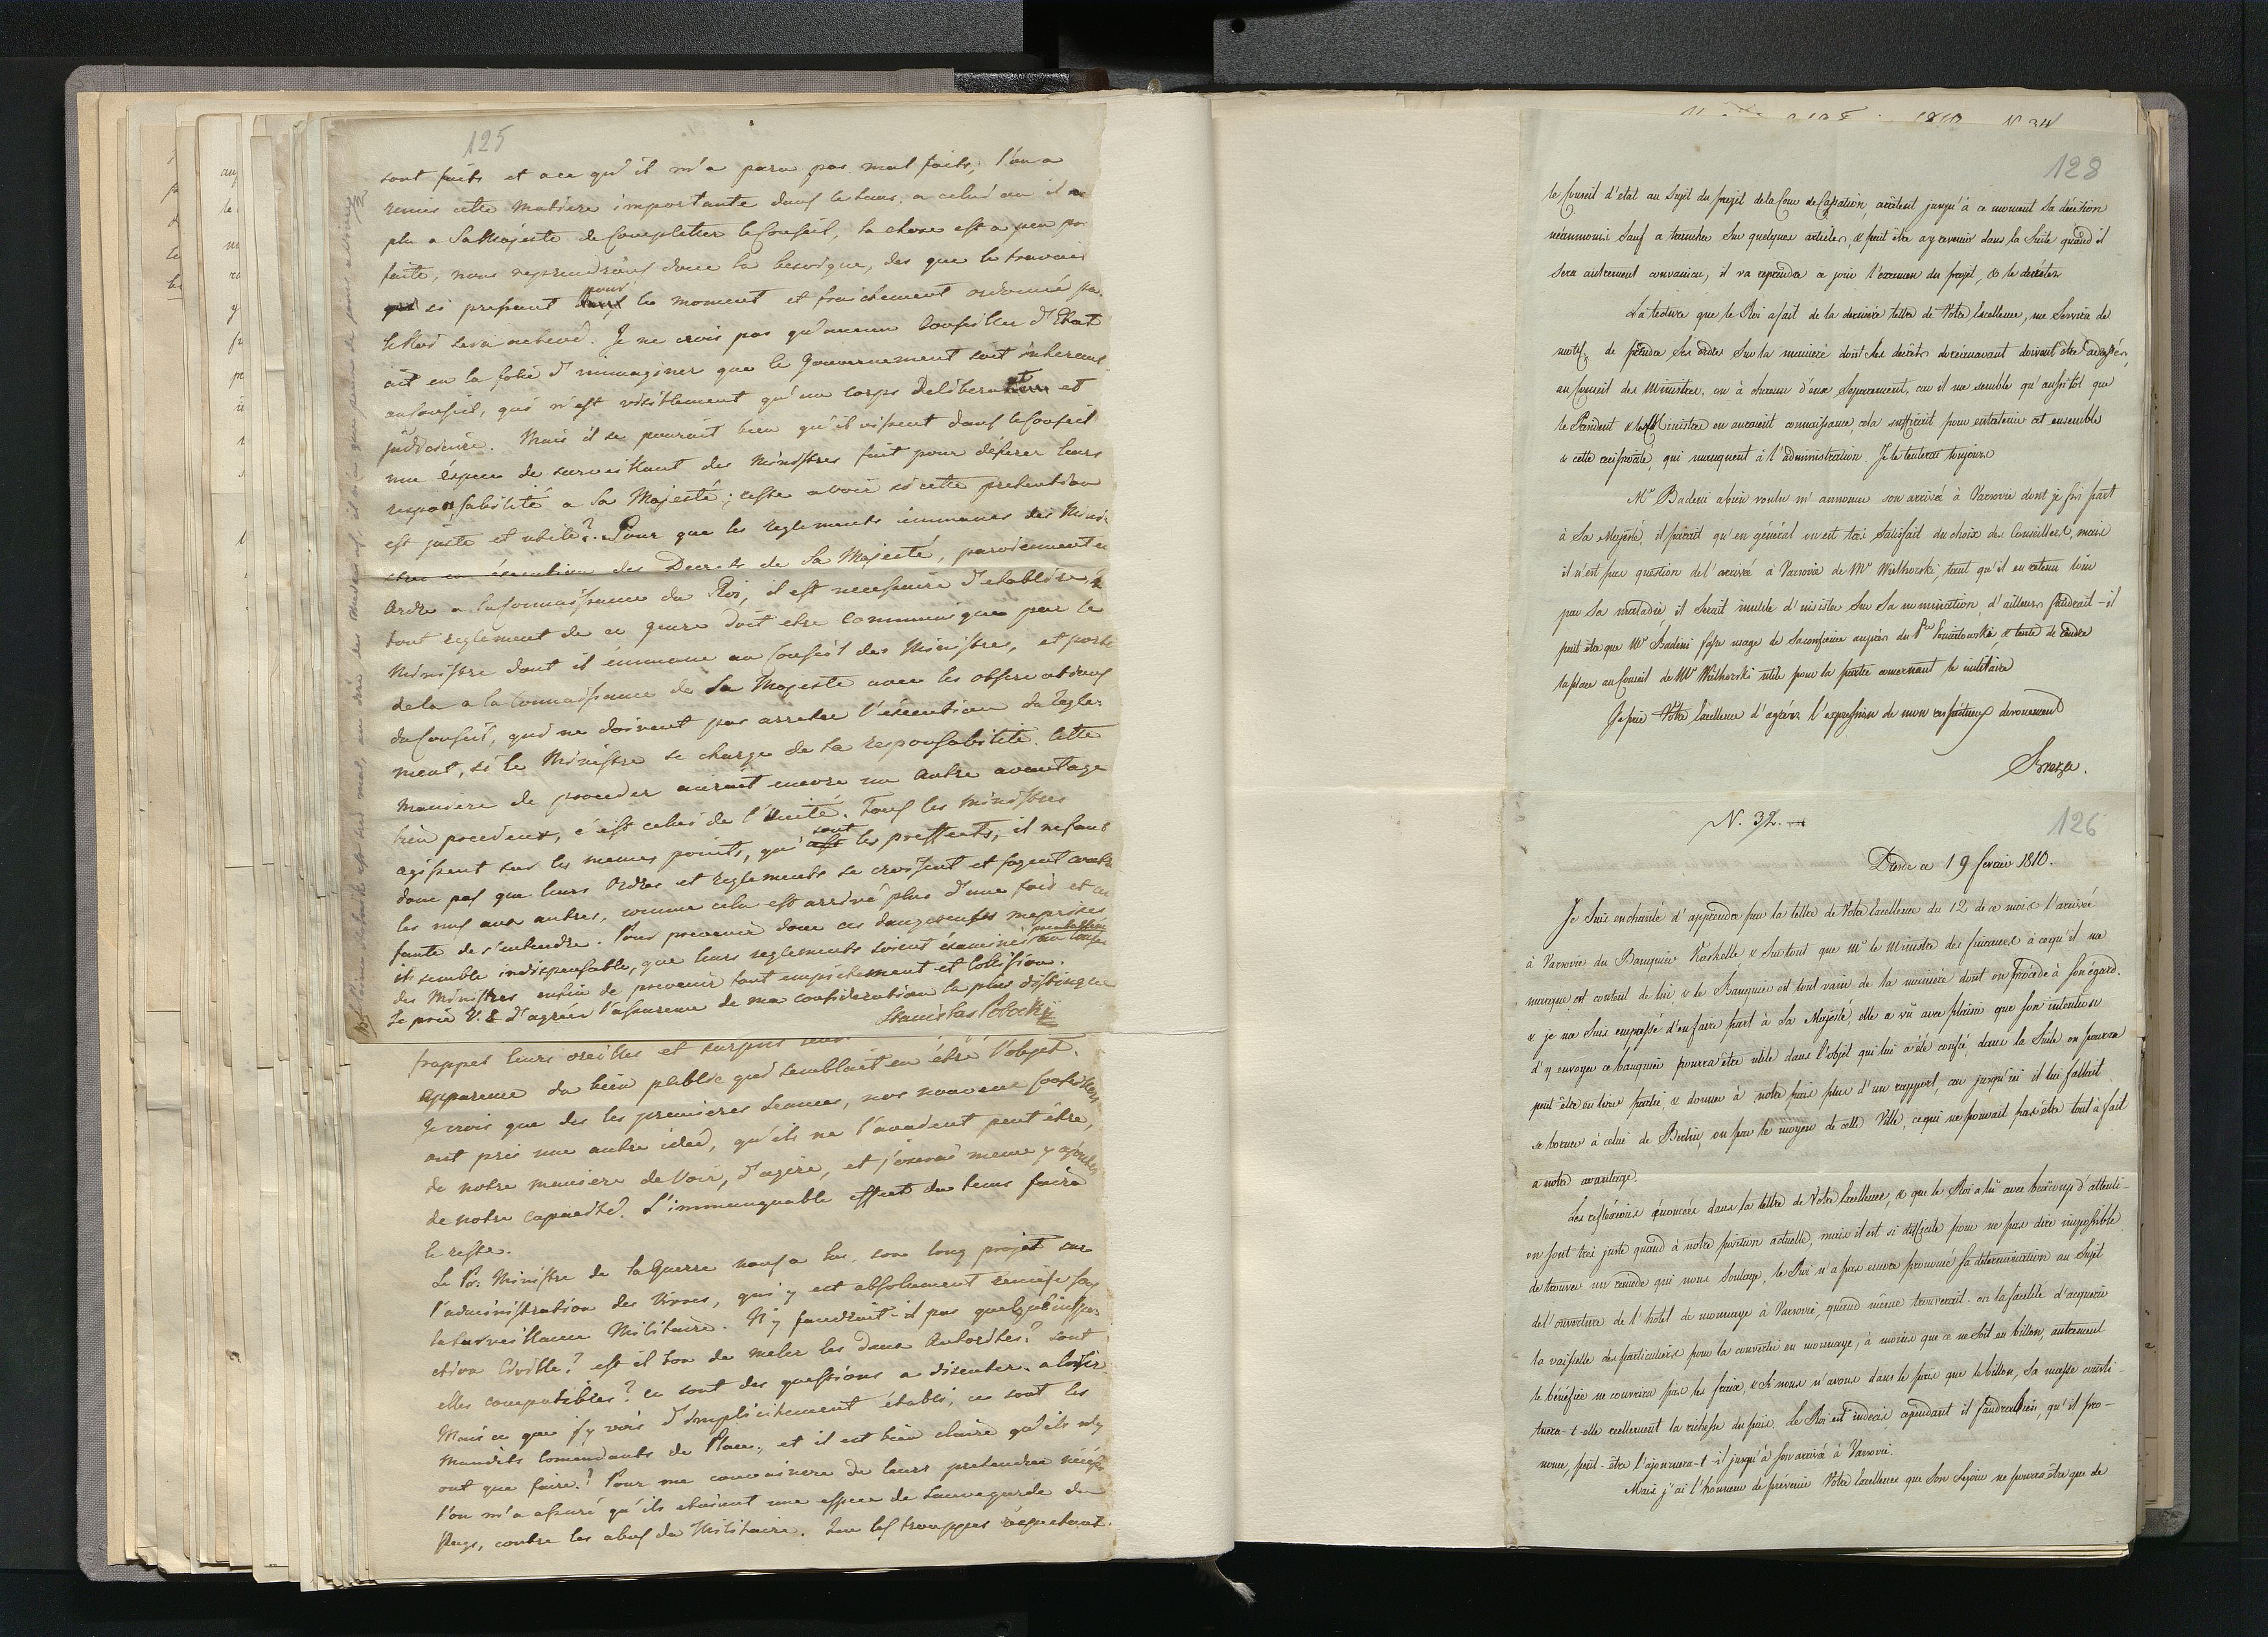 125
sont faits et a ce qu'il m'a paru pas mal faits, l'on a
remis cette matiere importante dans le tems, a celui ou il a
plu a Sa Majesté de Completter le Conseil, la chose est a peu prs
faite, nous reprendrons donc la besoigne, des que le travail
si pressant pour le moment et fraichement ordonné par
le Roi sera achevé. Je ne crois pas qu'aucun Conseiller d'Etat
ait eu la folie d'immaginer que le Gouvernement soit inherent
au Conseil, qui n'est visiblement qu'un corps Deliberant et
judiciaire. Mais il se pourait bien qu'ils vissent dans le Conseil
une éspece de surveillant des Ministres fait pour déferer leurs
responsabilité a Sa Majesté; reste a voir si cette pretention
est juste et utile? Pour que les reglements immanés des Mini-
stres en éxecution des Decrets de Sa Majesté, parviennent en
Ordre a la Connaissance du Roi, il est necessaire d'etablir
tout reglement de ce genre doit etre Communiqué par le
Ministre dont il émmane au Conseil des Ministres, et porté
de la a la Connaissance de Sa Majesté avec les observations
du Conseil, qui ne doivent pas arreter l'éxecution du Regle-
ment, si le Ministre se charge de la responsabilité. Cette
maniere de proceder auroit encore un autre avantage
bien precieux, c'est celui de l'Unité. Tous les Ministres
agissent sur les memes points, qui sont les presents, il ne faut
donc pas que leurs Ordres et reglements se croisent et soyent contr
les uns aux autres, comme cela est arrivé plus d'une fois et ce
faute de s'entendre. Pour prevenir donc ces dangereuses meprises
il semble indispensable, que leurs reglements soient éxaminés au Conseil
des Ministres enfin de prevenir tout empiechement et Collision.
Je prie V. E. d'agréer l'assurance de ma consideration la plus distinguée
Stanislas Potocki
frapper leurs oreilles et
apparence du bien public qui semblait en être l'objet.
Je crois que des les premieres seances, nos nouveaux Conseillers
ont pris une autre idée, qu'ils ne l'avaient peut être,
de notre maniere de Voir, d'agire, et j'oserai meme y ajouter
de notre capacité. L'immanquable effet du tems faira
le reste.
Le Pr. Ministre de la Guerre nous a lu son long projet sur
l'administration des Vivres, qui y est absolument remise sous
la surveillance Militaire. N'y faudrait-il pas quelque inspe-
ction Civille? est il bon de meler les deux Autorités? sont
elles compatibles? ce sont des questions a discuter a loisir
Mais ce que j'y vois d'implicitement établi, ce sont les
maudits Comendants de Place, et il est bien claire qu'ils n'y
ont que faire? Pour me convaincre de leurs pretendue nécess
l'on m'a assuré qu'ils etaient une espece de Sauvegarde du
Pays, contre les abus du Militaire. Que les trouppes respectent
128
le Conseil d'etat au Sujet du projet de la Cour de Cassation, arrêtent jusqu'à ce moment Sa décision
néanmoins Sauf a trancher Sur quelques articles, & peut être a y revenir dans la Suite quand il
Sera autrement convaincu, il va reprendre ce jour l'examen du projet, & le decréter
La lecture que le Roi a fait de la dernière lettre de Votre Excellence, me Servira de
motif de prendre Ses ordres Sur la manière dont Ses decrets dorénavant doivent être adressés,
au Conseil des Ministres, ou à chacun d'eux Separement, car il me semble qu'aussitôt que
le President & les Ministres en auraient connaissance, cela suffirait pour entretenir cet ensemble
& cette réciprocité, qui manquent à l'administration. Je le tenterai toujours
Mr Badeni a bien voulu m'annoncer son arrivée à Varsovie dont je fis part
à Sa Majesté, il parait qu'en général on est très Satisfait du choix des Conseillers, mais
il n'est pas question de l'arrivée à Varsovie de Mr Wielhorski, tant qu'il en retenu loin
par Sa maladie, il Serait inutile d'insister Sur Sa nomination, d'ailleurs faudrait-il
peut être que Mr Badeni fasse usage de Sa confiance auprès du Pce Poniatowski & tente de rendre
la place au Conseil de Mr Wielhorski utile pour la partie concernant le militaire
Je prie Votre Excellence d'agréer l'expression de mon respectueux devouement
Breza.
N. 32.
126
Dresde ce 19 fevrier 1810.
Je Suis enchanté d'apprendre par la lettre de Votre Excellence du 12 de ce mois l'arrivée
à Varsovie du Banquier Kaskelle & Surtout que Mr le Ministre des finances à ce qu'il me
marque est content de lui, & le Banquier est tout vain de la manière dont on procède à Son égard.
& je me Suis empressé d'en faire part à Sa Majesté, elle a vû avec plaisir que Son intention
d'y envoyer ce banquier pourra être utile dans l'objet qui lui a été confié, dans la Suite on pourra
peut-être en tirer partie, & donner à notre païs plus d'un rapport, car jusqu'ici il lui fallait
se borner à celui de Berlin, ou par le moyen de cette Ville, ce qui ne pouvait pas être tout à fait
a notre avantage.
Les réfléxions énoncées dans la lettre de Votre Excellence, & que le Roi a lû avec beaucoup d'attenti-
on sont très juste quand à notre position actuelle, mais il est si difficile pour ne pas dire impossible
de trouver un remède qui nous Soulage, le Roi n'a pas encore prononcé Sa détermination au Sujet
de l'ouverture de l'hôtel de monnaye à Varsovie, quand même trouverait-on la facilité d'acquerir
la vaisselle des particuliers pour la convertir en monnaye, à moins que ce ne Soit en billon, autrement
le bénéfice ne couvrira pas les fraix, & Si nous n'avons dans le païs que le billon, Sa masse consti-
tuera-t-elle reellement la richesse du païs. Le Roi est indecis cependant il faudra bien, qu'il pro-
nonce, peut-être l'ajournera-t-il jusqu'à Son arrivée à Varsovie.
Mais j'ai l'honneur de prévenir Votre Excellence que Son Sejour ne pourra être que de